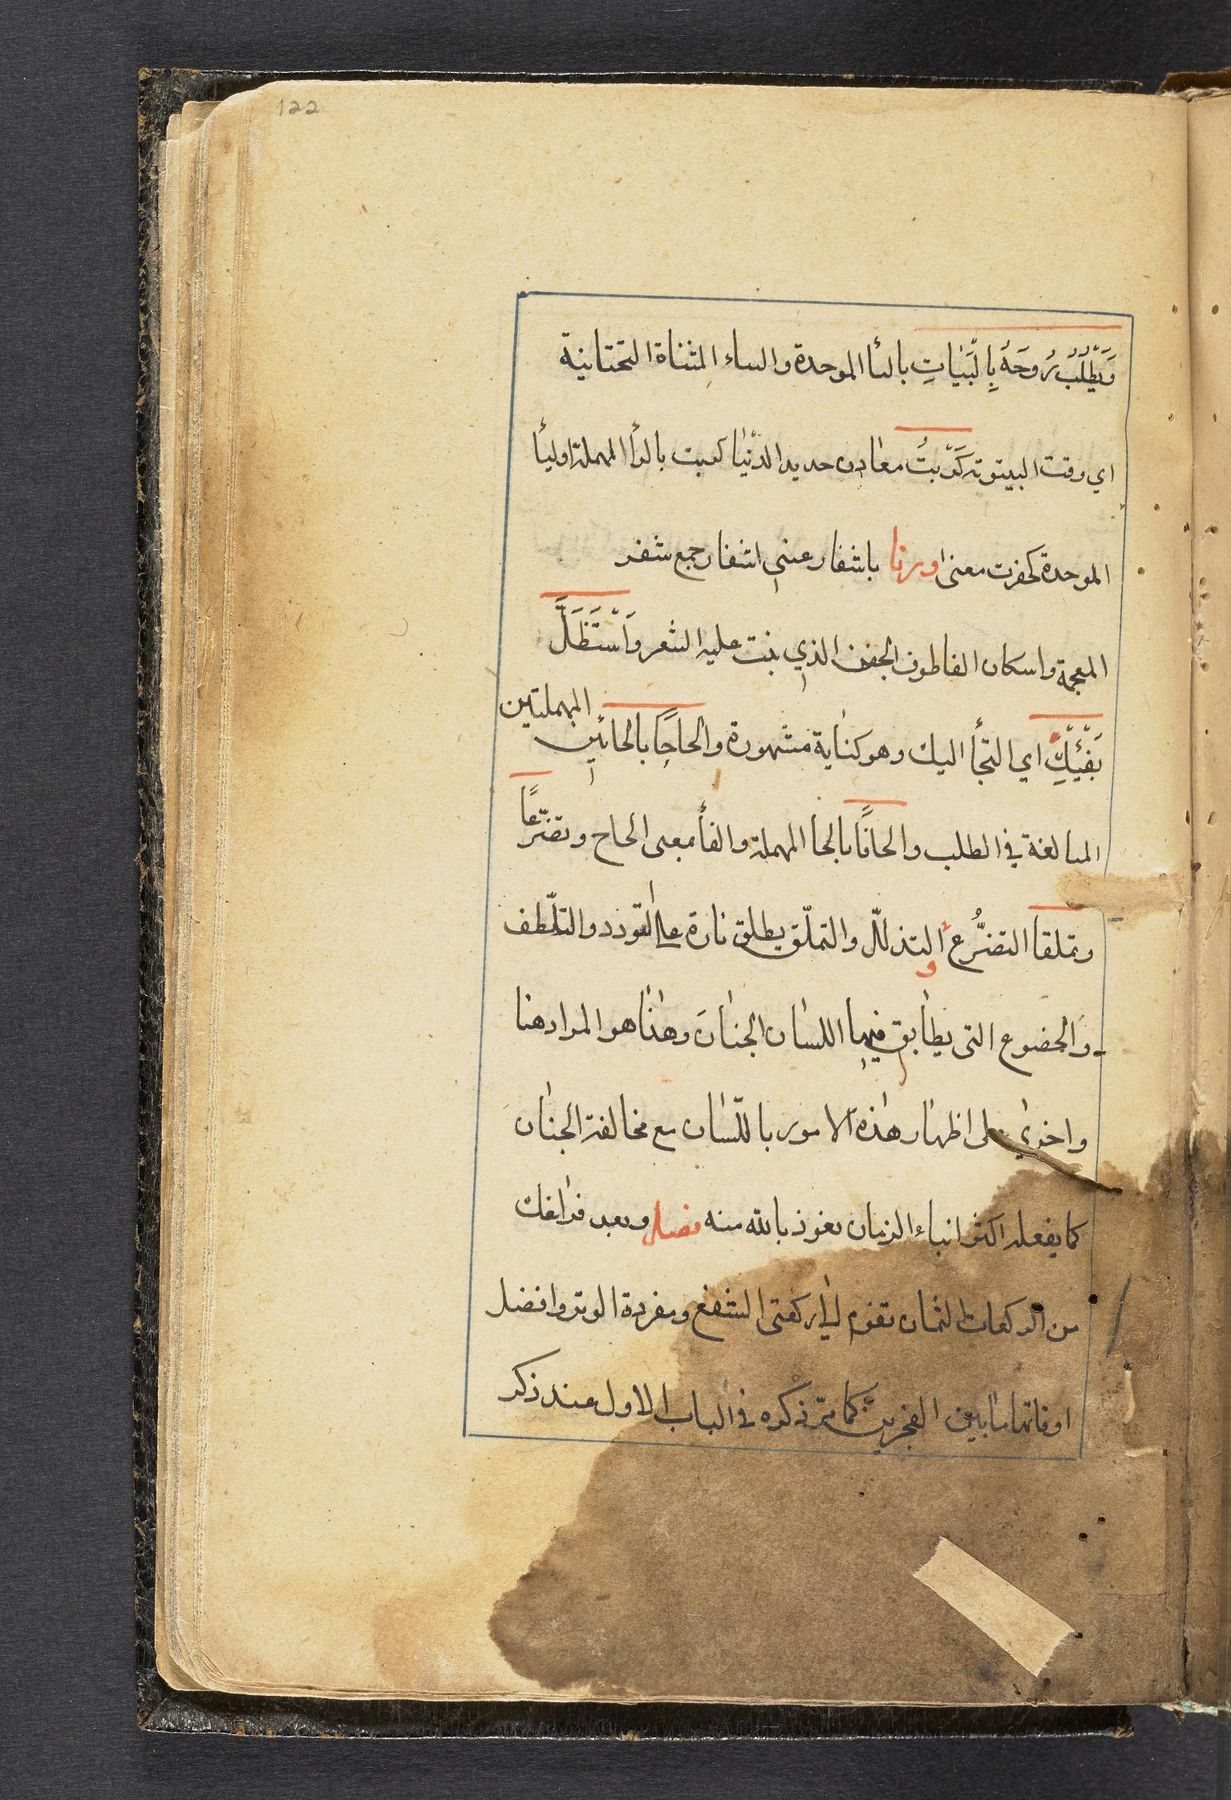 122
وَيَطْلُبُ رُوحَهُ بِالْبَيَاتِ بالبأ الموحدة والياء المثناة التحتانية
اي وقت البيتوته كَرَبتُ معادن حديد الدنيا كربت بالرأ المهملة والبأ
الموحدة كحفرت معنى ووزنا باشفار عيني اشفار جمع شفر
المعجمة واسكان الفا طرف الجفن الذي ينبت عليه الشعر وَاَسْتَظَلَّ
بَفَيْئِكَ اي التجأ اليك وهو كناية مشهورة والحاحًا بالحائين المهملتين
المبالغة في الطلب والحافًا بالحا المهملة والفأ بمعنى الحاح وتضرّعًا
وتملقا التضرُّع و التذلّل والتملّق يطلق تارة على التودد والتلطف
والخضوع التي يطابق فيها اللسان الجنان وهذا هو المراد هنا
واخرى على اظهار هذه الامور باللّسان مع مخالفة الجنان
كما يفعله اكثر ابناء الزمان نعوذ بالله منه فصل وبعد فراغك
من الركعات الثمان تقوم الى ركعتى الشفع ومفردة الوتر وافضل
اوقاتها مابين الفجرين كما مر ذكره في الباب الاول عند ذكر